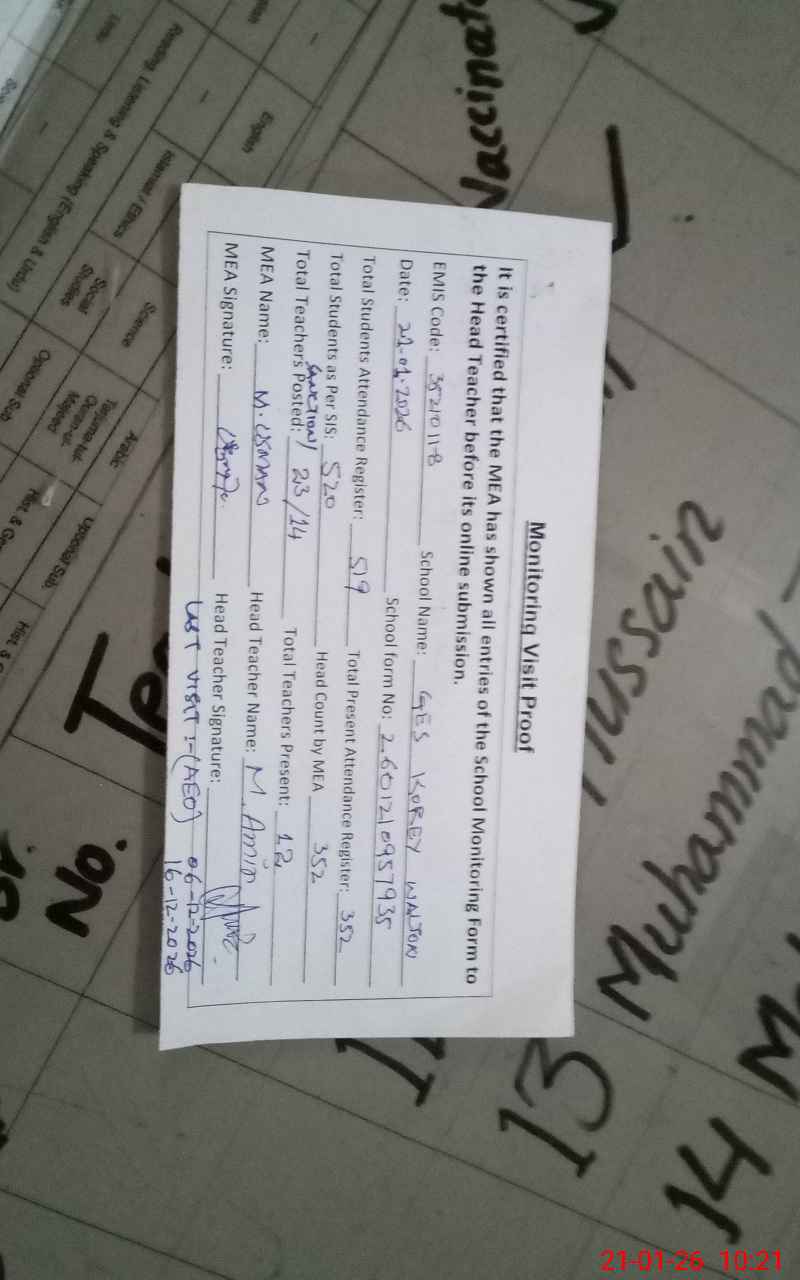 Monitoring Visit Proof
It is certified that the MEA has shown all entries of the School Monitoring Form to
the Head Teacher before its online submission.
EMIS Code: 35210118 School Name: GES KOREY WALTON
Date: 21-01-2026 School form No: 2601210957935
Total Students Attendance Register: 519 Total Present Attendance Register: 352
Total Students as Per SIS: 520 Head Count by MEA 352
SANCTION/
Total Teachers Posted: 23/14 Total Teachers Present: 12
MEA Name: M. USMAN Head Teacher Name: M. Amin
MEA Signature: Head Teacher Signature:
LAST VISIT :- (AEO) 06-12-2026
16-12-2026
Hussain
13 Muhammad
14
Sr.
No.
English
Reading, Listening & Speaking (English & Urdu)
Islamiat / Ethics
Social
Studies
Science
Optional Sub.
Arabic
21-01-26 10:21